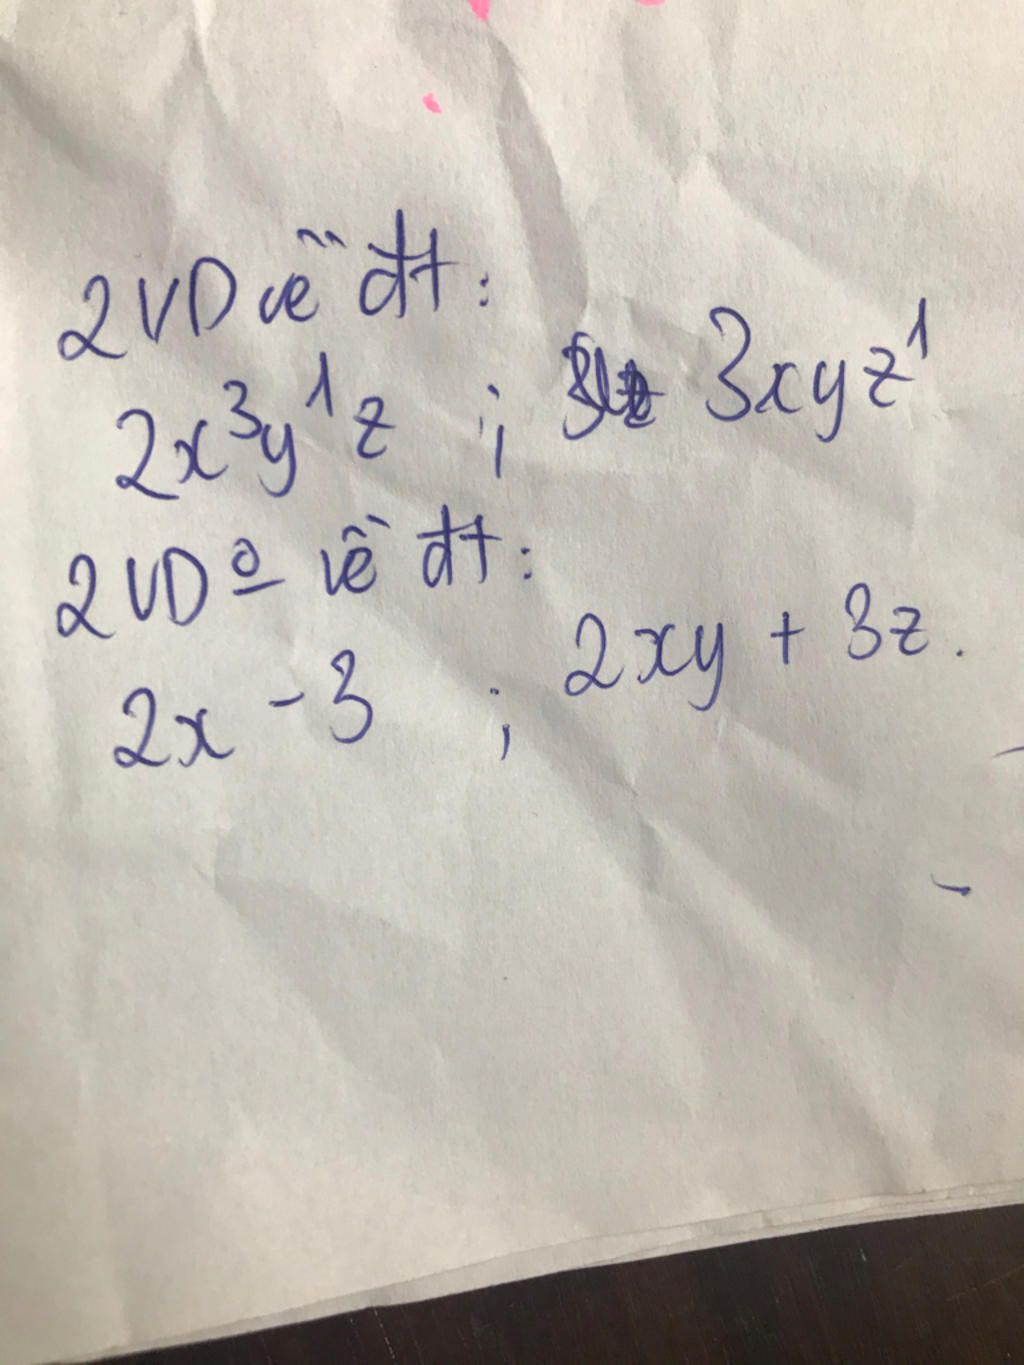 2 VD về đt:
2x³y¹z ; 3xyz¹
2 VD o về đt:
2x - 3 ; 2xy + 3z.